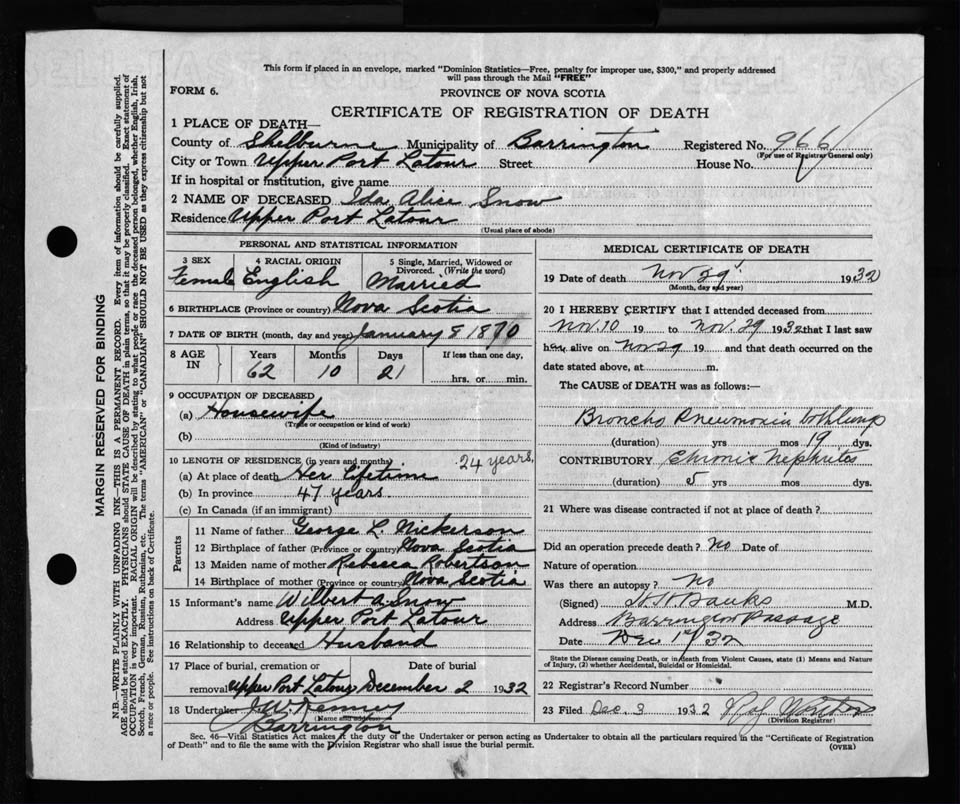 This form if placed in an envelope, marked "Dominion Statistics—Free, penalty for improper use, $300," and properly addressed
will pass through the Mail "FREE"
FORM 6.
PROVINCE OF NOVA SCOTIA
CERTIFICATE OF REGISTRATION OF DEATH
1 PLACE OF DEATH—
County of Shelburne Municipality of Barrington Registered No. 966
(For use of Registrar General only)
City or Town Upper Port Latour Street House No.
If in hospital or institution, give name
2 NAME OF DECEASED Ida Alice Snow
Residence Upper Port Latour
(Usual place of abode)
PERSONAL AND STATISTICAL INFORMATION
3 SEX 4 RACIAL ORIGIN 5 Single, Married, Widowed or
Divorced. (Write the word)
Female English Married
6 BIRTHPLACE (Province or country) Nova Scotia
7 DATE OF BIRTH (month, day and year) January 8 1870
8 AGE IN Years Months Days If less than one day,
62 10 21 hrs. or min.
9 OCCUPATION OF DECEASED
(a) Housewife
(Trade or occupation or kind of work)
(b)
(Kind of industry)
10 LENGTH OF RESIDENCE (in years and months) 24 years,
(a) At place of death Her lifetime
(b) In province 47 years
(c) In Canada (if an immigrant)
Parents
11 Name of father George L. Nickerson
12 Birthplace of father (Province or country) Nova Scotia
13 Maiden name of mother Rebecca Robertson
14 Birthplace of mother (Province or country) Nova Scotia
15 Informant's name Wilbert A. Snow
Address Upper Port Latour
16 Relationship to deceased Husband
17 Place of burial, cremation or Date of burial
removal Upper Port Latour December 2 1932
18 Undertaker J W Kenney
(Name and address)
Barrington
MEDICAL CERTIFICATE OF DEATH
19 Date of death Nov 29 1932
(Month, day and year)
20 I HEREBY CERTIFY that I attended deceased from
Nov. 10 19 to Nov. 29 1932 that I last saw
her alive on Nov 29 19 and that death occurred on the
date stated above, at m.
The CAUSE of DEATH was as follows:—
Broncho Pneumonia both lungs
(duration) yrs mos 19 dys.
CONTRIBUTORY Chronic Nephritis
(duration) 5 yrs mos dys.
21 Where was disease contracted if not at place of death?
Did an operation precede death? No Date of
Nature of operation
Was there an autopsy? No
(Signed) Banks M.D.
Address Barrington Passage
Date Dec 1st/32
State the Disease causing Death, or in death from Violent Causes, state (1) Means and Nature
of Injury, (2) whether Accidental, Suicidal or Homicidal.
22 Registrar's Record Number
23 Filed Dec. 3 1932
(Division Registrar)
Sec. 46—Vital Statistics Act makes it the duty of the Undertaker or person acting as Undertaker to obtain all the particulars required in the "Certificate of Registration
of Death" and to file the same with the Division Registrar who shall issue the burial permit.
(OVER)
MARGIN RESERVED FOR BINDING
N.B.—WRITE PLAINLY WITH UNFADING INK—THIS IS A PERMANENT RECORD. Every item of information should be carefully supplied.
AGE should be stated EXACTLY. PHYSICIANS should STATE CAUSE OF DEATH in plain terms, so that it may be properly classified. Exact statement of
OCCUPATION is very important. RACIAL ORIGIN will be described by stating to what people or race the deceased person belonged, whether English, Irish,
Scotch, French, German, Russian, Ruthenian, etc. The terms "AMERICAN" or "CANADIAN" SHOULD NOT BE USED as they express citizenship but not
a race or people. See instructions on back of Certificate.